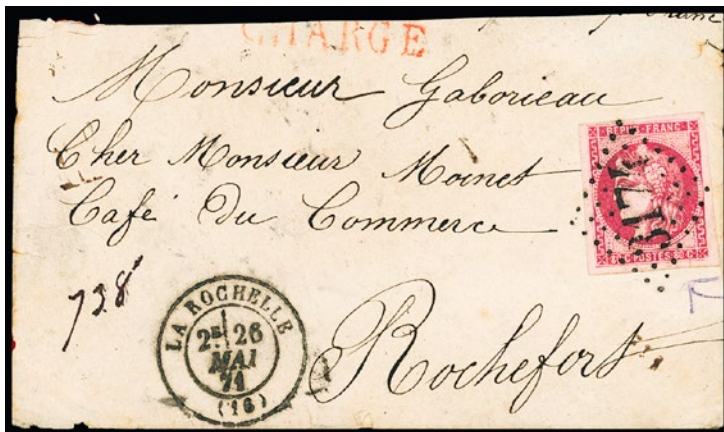 CHARGE
Monsieur Gaborieau
Cher Monsieur Moinet
Café du Commerce
Rochefort
738
LA ROCHELLE
2E 26
MAI
71
(16)
REPUB · FRANC ·
POSTES